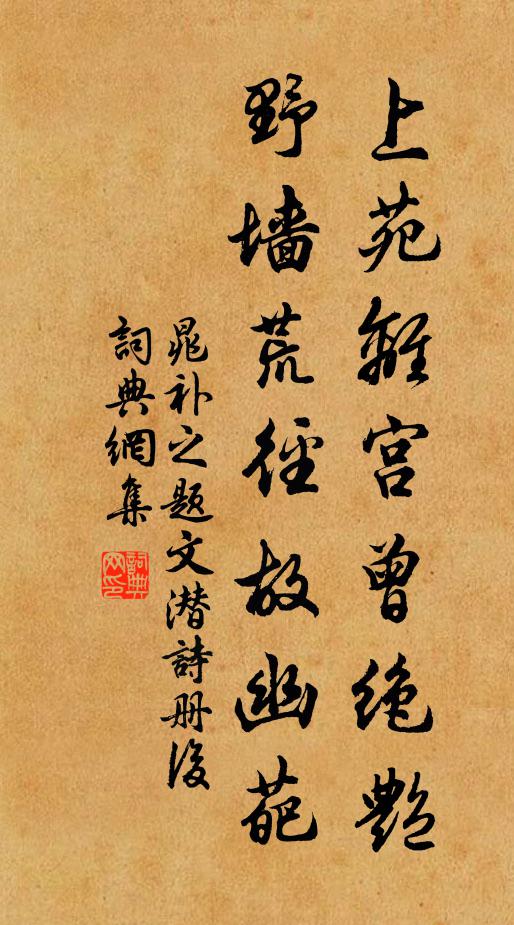 上苑離宫曾绝艷
野墙荒徑故幽葩
晁补之题文潜詩册後
詞典網集
詞典网印